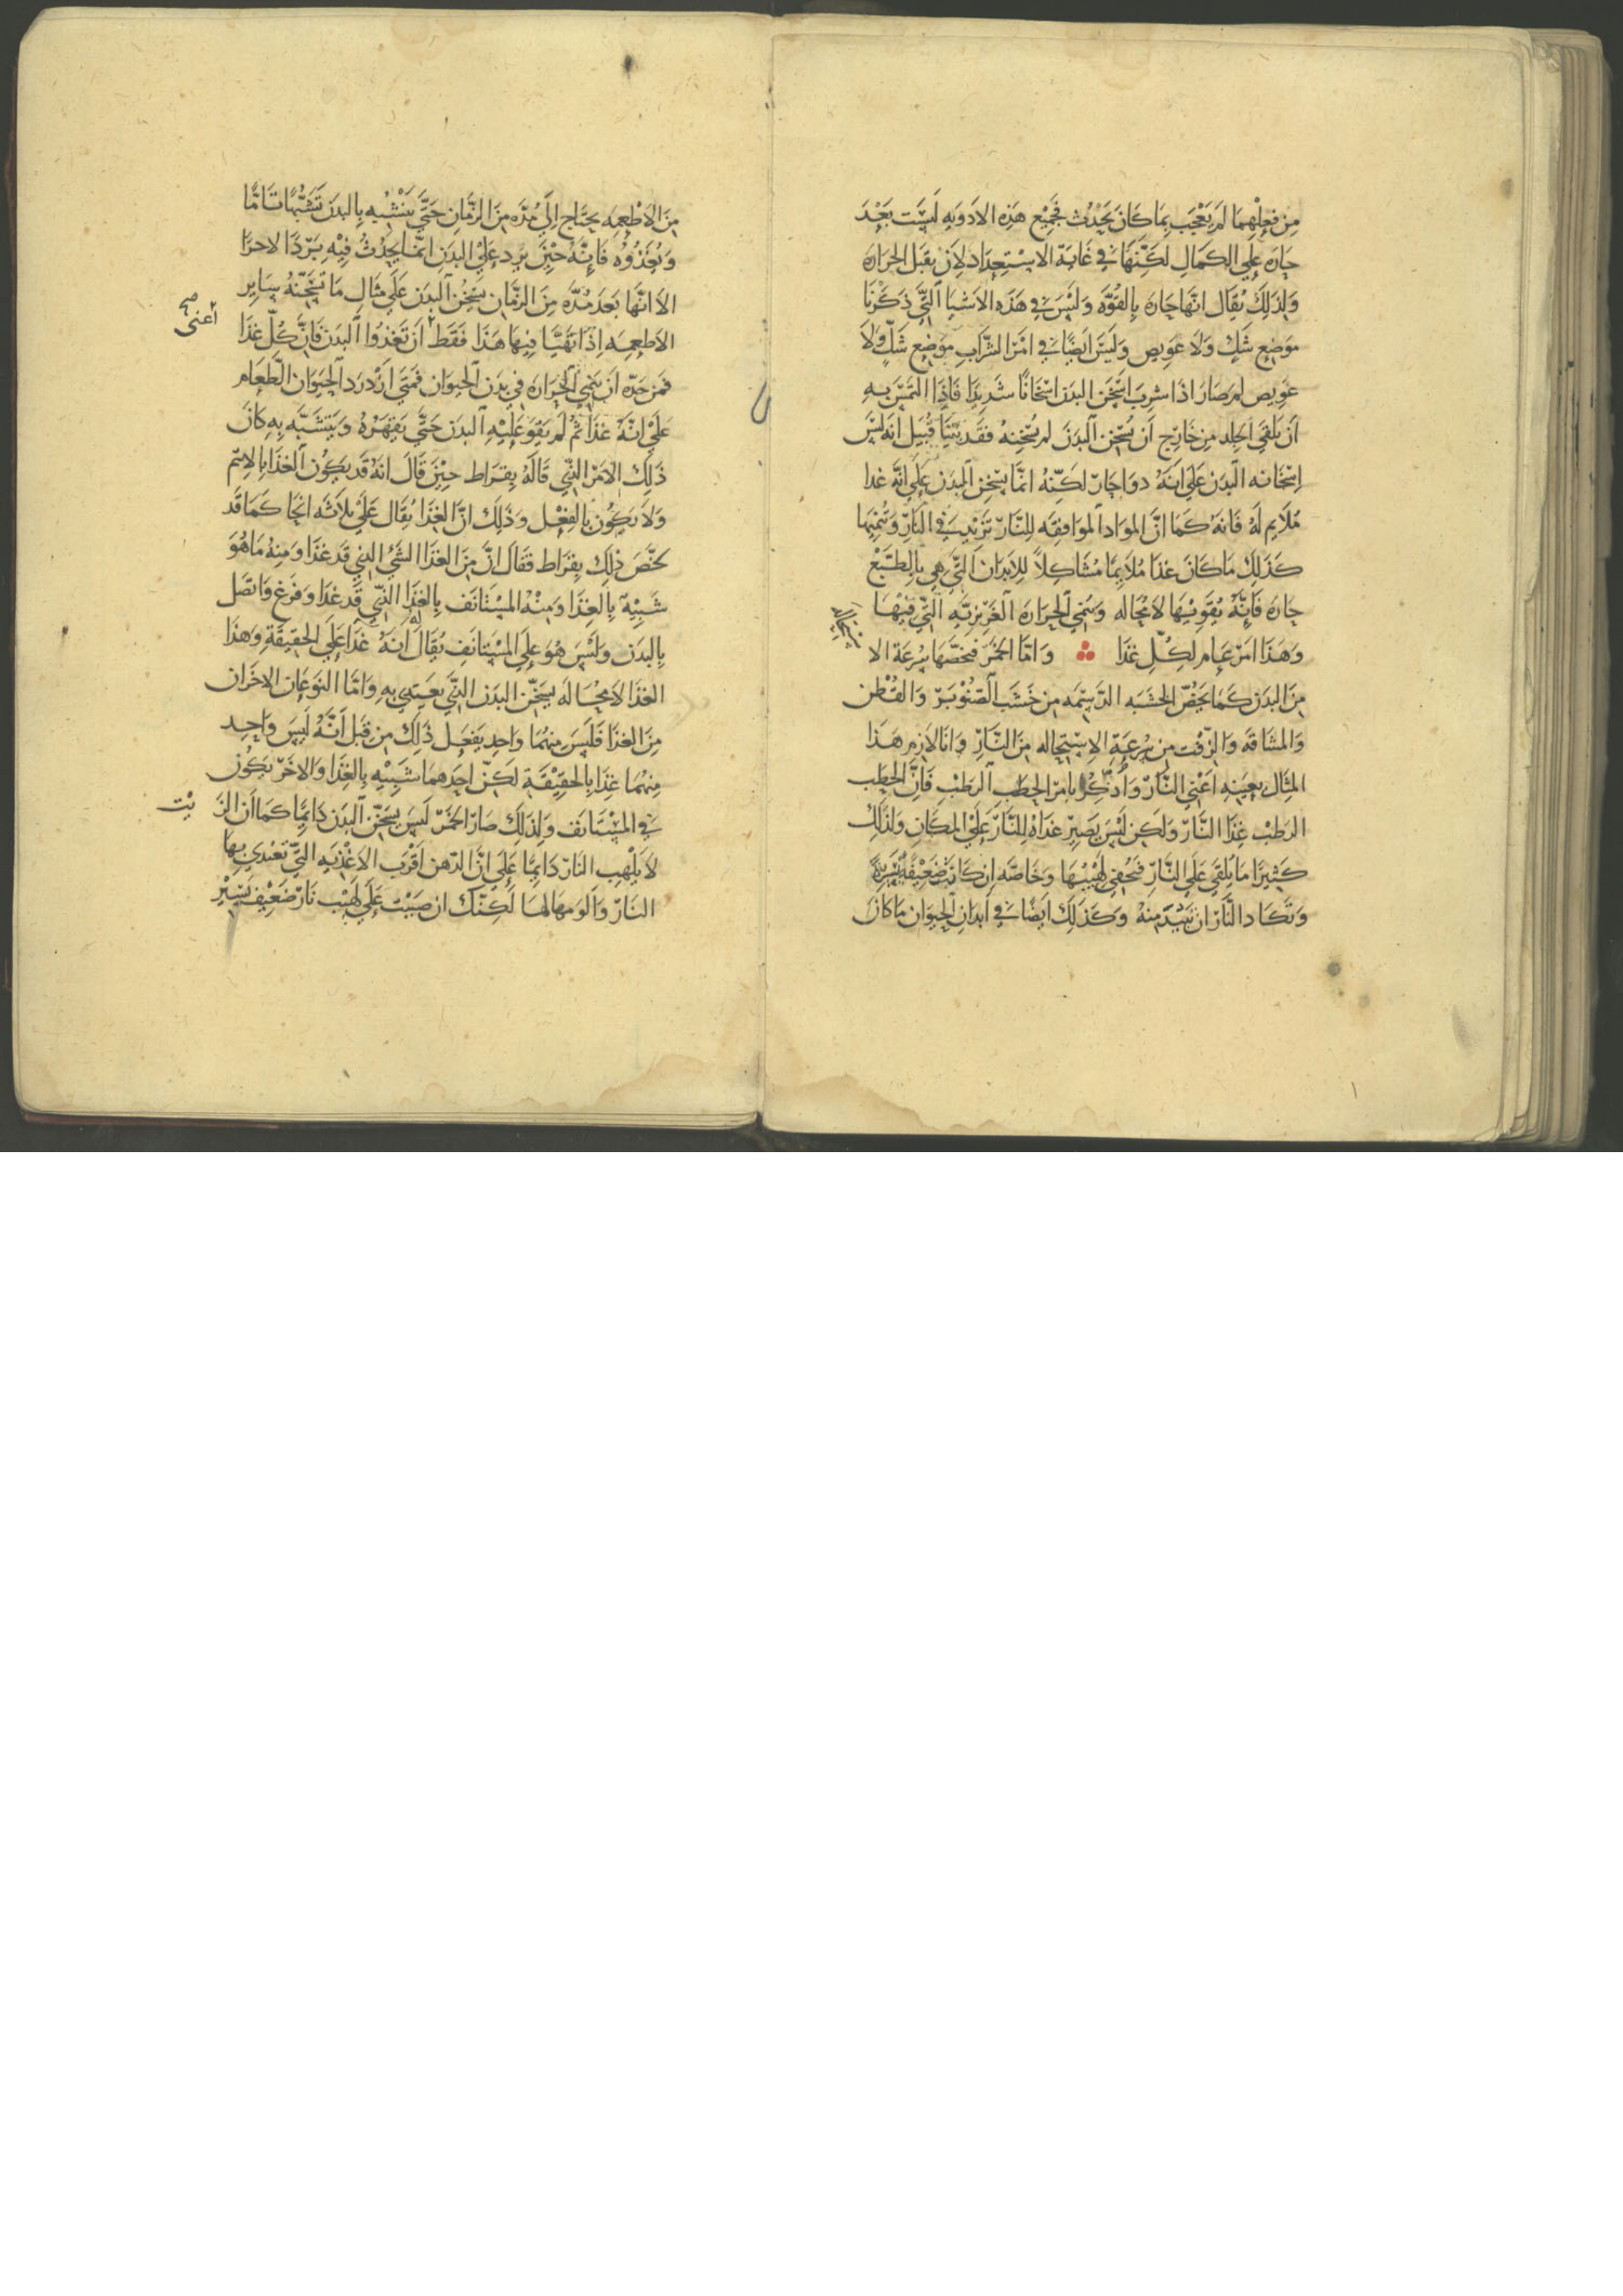 مِن فِعلِهِمَا لم يَعْجَب بِمَا كَانَ يَحْدُث فجَمِيْع هَذِه الادويَه ليسَت بَعْدَ
حَارَه عَلي الكمَالِ لكنّهَا في غَايَة الاستعدَاد لان يقبَل الحَرَاره
وَلِذلِكَ يُقَال انّهَا حَارَه بِالقُوّه وَليْسَ في هَذه الاشيَا الّتي ذكرْنَا
مَوْضِع شَكٍّ وَلا عَويص وَليسَ ايضًا في امْر الشّرَاب موْضِع شَكٍّ وَلَا
عَويص لم صَارَ اذا شرِبَ اسْخَن البدَن اسْخَانًا شَديدًا فَاذَا التمسَ بِهِ
اَن يَلقَي الجِلد مِن خَارِج اَن يُسْخن البَدَنَ لم يُسْخنهُ فقَد بَيّنَا قُبَيل انه لَيْسَ
اِسْخَانه البَدَن عَلي انّهُ دوَا حَارّ لكنّهُ انمَّا يسْخن البدَن عَلي انّه غدا
مُلَايم لهُ فَانهُ كَمَا انَّ الموَاد الموَافِقه لِلنَّارّ تَزيْد في النّارّ وَتُنْمِيهَا
كذَلِكَ مَا كَانَ غدَا مُلايمًا مُشَاكِلاً لِلابدَان التّي هي بِالطَبْع
حَارَه فَإنّهُ يُقوّيْهَا لا مُحَاله وَيُنْمي الحرَاره الغَريزيّه التّي فيهَا
وَهَذَا امْر عَام لكُلّ غذَا وَامّا الخمْر فيَخصّهَا سُرعَة الا
مِنَ البَدَن كمَا يَخُصّ الخشَبَه الدّسِمَه مِن خَشَب الصّنَوْبَر وَالقُطْن
وَالمشَاقَه وَالزّفْت مِن سُرعَةِ الاسْتِحَاله مِنَ النّارّ وَانَا لازِم هَذَا
المِثَال بِعَينِهِ اَعْني النَّارّ وَاُذكّر بِامْر الحطَب الرَطْبِ فَانَّ الحَطَب
الرطْب غِذَا النَّارّ وَلَكِن ليْسَ يَصِيرّ غذَاهُ لِلنَّارّ عَليْ المكَان وَلِذلِكَ
كَثِيرًا مَا يُلقَي عَلَي النَّارّ فيُخْفي لَهِيْبَهَا وَخاصّه اِن كانَتْ ضَعِيْفَةً يَسِيْرةً
وَتَكَاد النَّارّ ان تَبِيْدَ مِنهُ وَكَذَلِكَ ايْضًا في اَبدَان الحيَوَان مَا كَانَ
مِنَ الاَطْعِمَه يحتَاج اِلي مُدَّه مِنَ الزَّمَانِ حَتَّي يَتشَبَّه بِالبدَن تَشَبُّهًا تَامًّا
وَيُغذُوُه فَإنَّهُ حِيْنَ يَرِد عَليْ البدَن انمّا يُحْدِثُ فِيْهِ بَرْدًا لا حرًا
الاّ انّهَا بَعدَ مُدَّه مِنَ الزَّمَان يُسْخن البَدَن عَلَي مِثَالِ مَا تُسْخِنهُ سَايِر
الاَطعِمَه اِذَا تَهَيَّا فِيهَا هَذَا فَقَط اَن تَغذُوا البَدَن فَانَّ كُلّ غذَا
اعني صح
فمن حَدّه اَن يُنْمي الحَرَارَه في بَدَن الحيوَان فمَتَي ازْدَرَد الحيَوَان الطَعَام
عَليْ انّهُ غذَا ثُمّ لمْ يَقوَ عَليْهِ البَدَن حَتَّي يَقْهَرُهُ وَيَتشَبَّه بِهِ كَانَ
ذَلِكَ الاَمْر الذّي قَالَهُ بِقرَاط حِيْنَ قَالَ انهُ قَد يَكوُن الغذَا بِالاِسْم
وَلاَ يَكوُن بِالفِعْل وَذَلِكَ انَّ الغِذَا يُقَال عَليْ ثلاثَه انحَا كمَا قَد
لخّصَ ذلِكَ بِقرَاط فقَالَ انَّ مِنَ الغذَا الشّيْ الذي قَد غذَا وَمِنهُ مَا هُوَ
شَبِيْهٌ بِالغِذَا وَمِنْهُ المسْتَانَف بِالغذَا الذّي قَد غذَا وَفرَغ وَاتصَل
بِالبدَن وَليْسَ هُوَ عَلي المسْتَانَفِ يُقَال لَه انّهُ غذَا عَلَي الحقِيقَةِ وَهَذَا
الغذَا لامحَاله يُسَخّن البدَن الذّي يَغتذي بِهِ وَامّا النوعَان الاخرَان
مِنَ الغذَا فَليسَ مِنهُمَا وَاحِد يَفعَل ذَلِكَ مِن قِبَل اَنَّهُ لَيسَ وَاحِد
مِنهُمَا غِذَا بِالحقِيْقَةِ لَكِنّ احَدهمَا شَبِيْه بِالغِذَا وَالاخَر يَكُون
في المسْتَانَف وَلِذلِكَ صَارَ الخمْر ليسَ يُسَخّن البَدَن دَائِمًا كمَا ان الزَ يْت
لاَ يُلْهِب النَارّ دَائِمًا عَلي انَّ الدّهن اَقْرَب الاَغْذِيَه التيّ تغْتذي بِهَا
النَارّ وَالومهَا لهَا لكِنّكَ ان صَبَبْتَ عَلَي لَهِيْب نَارّ ضَعِيْف يَسِيْر